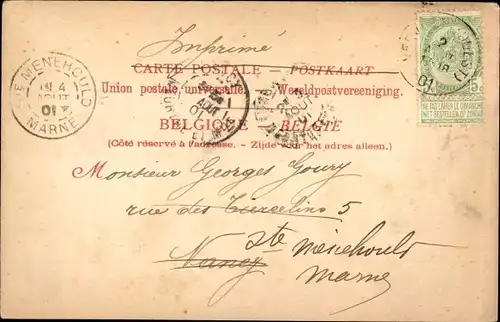 Imprimé
CARTE POSTALE – POSTKAART
Union postale universelle Wereldpostvereeniging.
BELGIQUE BELGIË
(Côté réservé à l'adresse. - Zijde voor het adres alleen.)
Monsieur Georges Goury
rue des Tiercelins 5
Nancy Ste Menehould
Marne
MENEHOULD
4
AOUT
01
MARNE
5c
NE PAS LIVRER LE DIMANCHE
NIET BESTELLEN OP ZONDAG